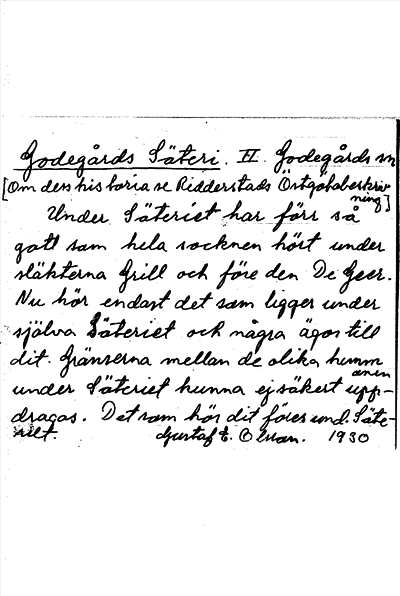 Godegårds Säteri. II. Godegårds sn
[Om dess historia se Ridderstads Östgötabeskriv
ning]
Under Säteriet har förr så
gott som hela socknen hört under
släkterna Grill och före den De Geer.
Nu hör endast det som ligger under
själva Säteriet och några ägor till
dit. Gränserna mellan de olika hemm
anen
under Säteriet kunna ej säkert upp-
dragas. Det som hör dit föres und. Säte-
riet. Gustaf E. Olsson. 1930